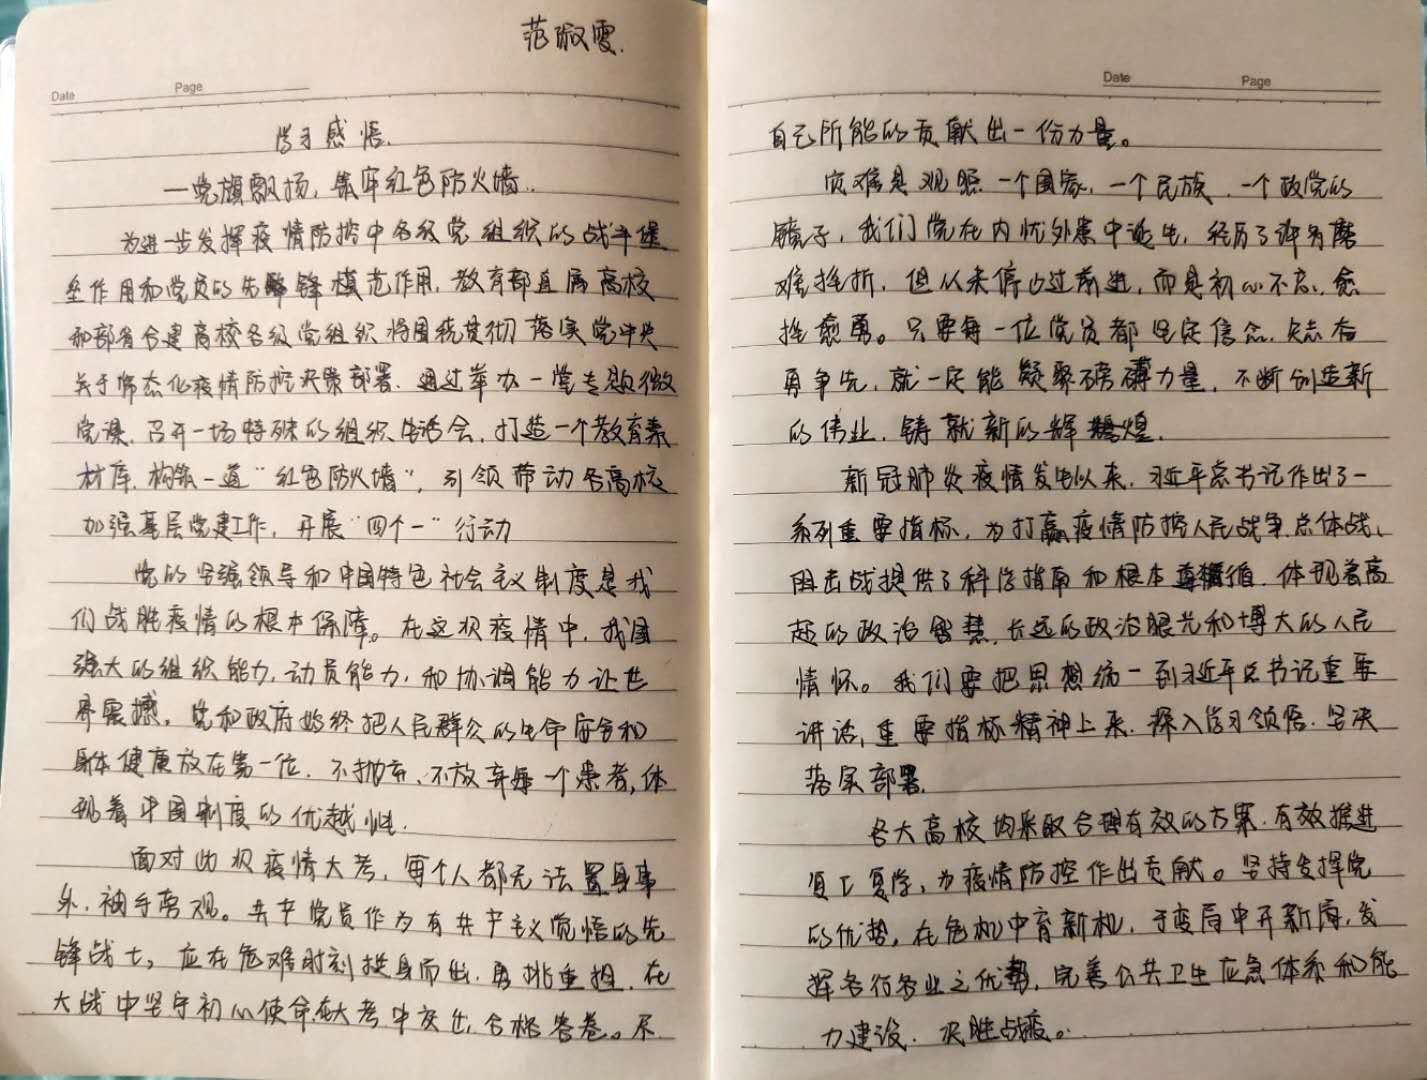 范淑雯.
Date
Page
学习感悟.
—党旗飘扬，筑牢红色防火墙..
为进一步发挥疫情防控中各级党组织的战斗堡
垒作用和党员的先锋模范作用，教育部直属高校
和部省合建高校各级党组织将围绕贯彻落实党中央
关于常态化疫情防控决策部署，通过举办一堂专题微
党课，召开一场特殊的组织生活会，打造一个教育素
材库，构筑一道“红色防火墙”，引领带动各高校
加强基层党建工作，开展“四个一”行动
党的坚强领导和中国特色社会主义制度是我
们战胜疫情的根本保障。在这次疫情中，我国
强大的组织能力，动员能力，和协调能力让世
界震撼，党和政府始终把人民群众的生命安全和
身体健康放在第一位，不抛弃、不放弃每一个患者，体
现着中国制度的优越性.
面对此次疫情大考，每个人都无法置身事
外，袖手旁观。共产党员作为有共产主义觉悟的先
锋战士，应在危难时刻挺身而出，勇挑重担，在
大战中坚守初心使命在大考中交出，合格答卷。尽
Date
Page
自己所能的贡献出一份力量。
灾难是观照一个国家，一个民族，一个政党的
镜子，我们党在内忧外患中诞生，经历了许多磨
难挫折，但从未停止过前进，而是初心不忘，愈
挫愈勇。只要每一位党员都坚定信念，矢志奋
勇争先，就一定能凝聚磅礴力量，不断创造新
的伟业，铸就新的辉煌.
新冠肺炎疫情发生以来，习近平总书记作出了一
系列重要指标，为打赢疫情防控人民战争、总体战、
阻击战提供了科学指南和根本遵循，体现着高
超的政治智慧，长远的政治眼光和博大的人民
情怀。我们要把思想统一到习近平总书记重要
讲话，重要指标精神上来，深入学习领悟，坚决
落实部署.
各大高校均采取合理有效的方案，有效推进
复工复学，为疫情防控作出贡献。坚持发挥党
的优势，在危机中育新机，于变局中开新局，发
挥各行各业之优势，完善公共卫生应急体系和能
力建设，决胜战疫。